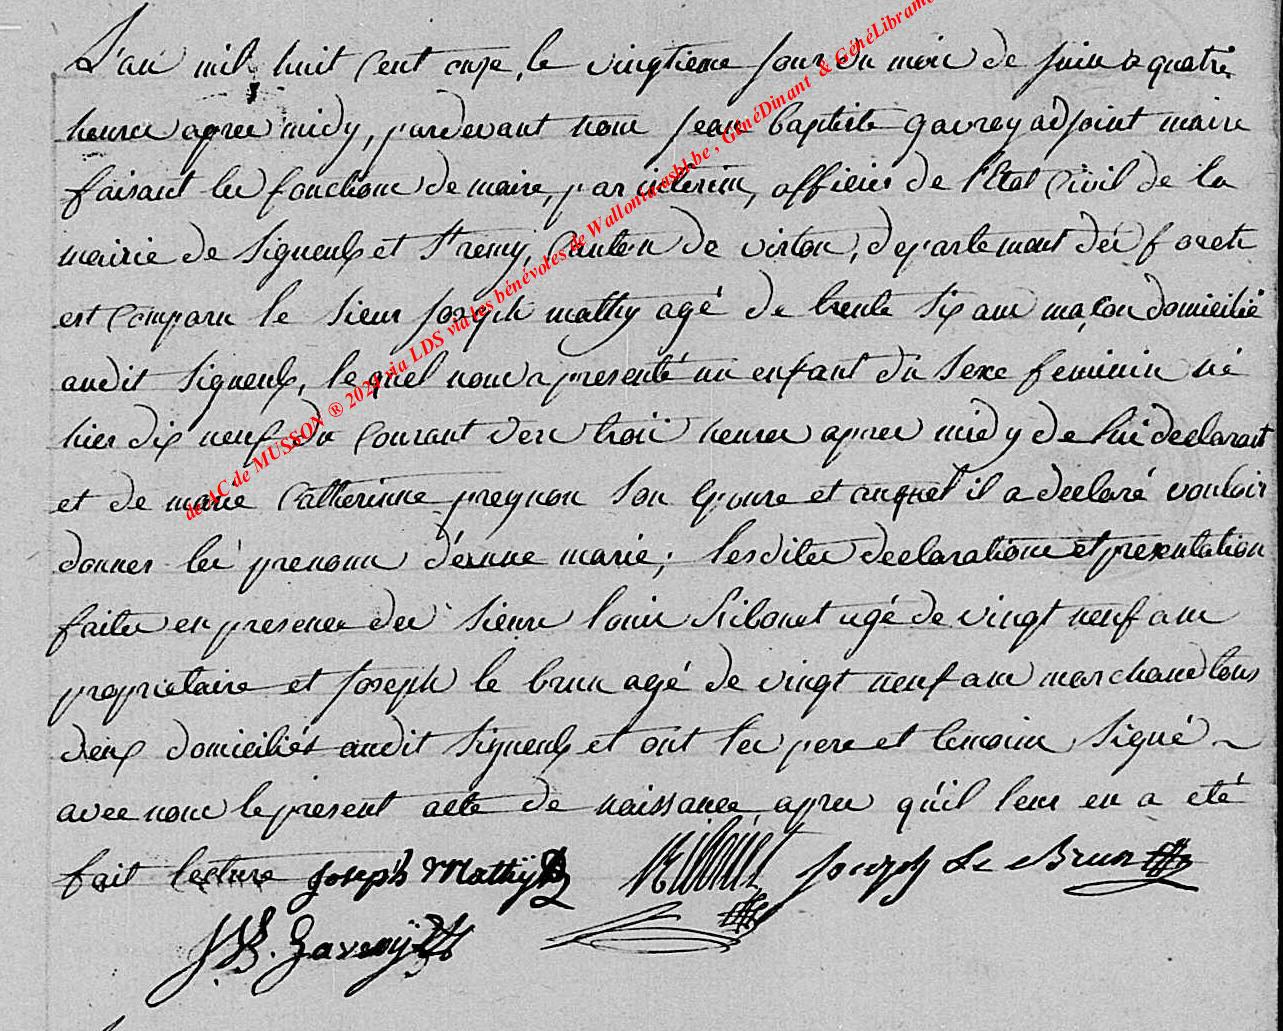 L'an mil huit cent onze, le vingtieme jour du mois de juin a quatre
heures apres midy, pardevant nous jean baptiste gavroy adjoint maire
faisant les fonctions de maire, par interim, officier de l'Etat Civil de la
mairie de Signeulx et St remy, Canton de virton, departement des forets
est comparu le sieur joseph mathy agé de trente six ans maçon domicilié
audit Signeulx, lequel nous a presenté un enfant du sexe feminin né
hier dix neuf du courant vers trois heures apres midy de lui declarant
et de marie Catherinne preynon son Epouse et auquel il a declaré vouloir
donner les prenoms d'anne marie; lesdites declarations et presentation
faites en presence des sieurs louis ribonet agé de vingt neuf ans
proprietaire et joseph le brun agé de vingt neuf ans marchand tous
deux domiciliés audit Signeulx et ont les pere et temoins signé
avec nous le present acte de naissance apres qu'il leur en a été
fait lecture Joseph Mathÿ Joseph Le Brun
JB. Gavroÿ
de AC de MUSSON ® 202 via LDS via les bénévoles de Wallonia asbl.be , GénéDinant & GénéLibramo